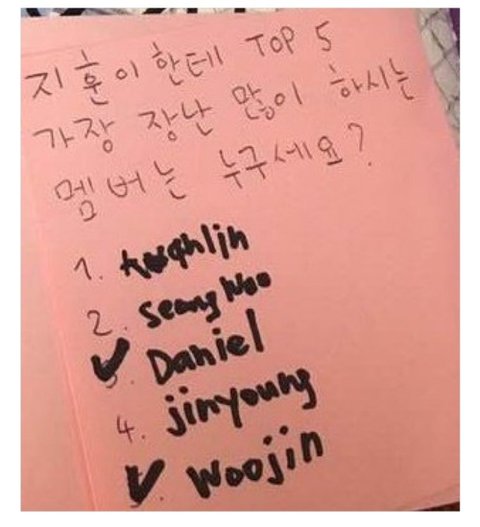 지훈이 한테 TOP 5
가장 장난 많이 하시는
멤버는 누구세요?
1. kuanlin
2. seongwoo
✔ Daniel
4. jinyoung
✔. Woojin